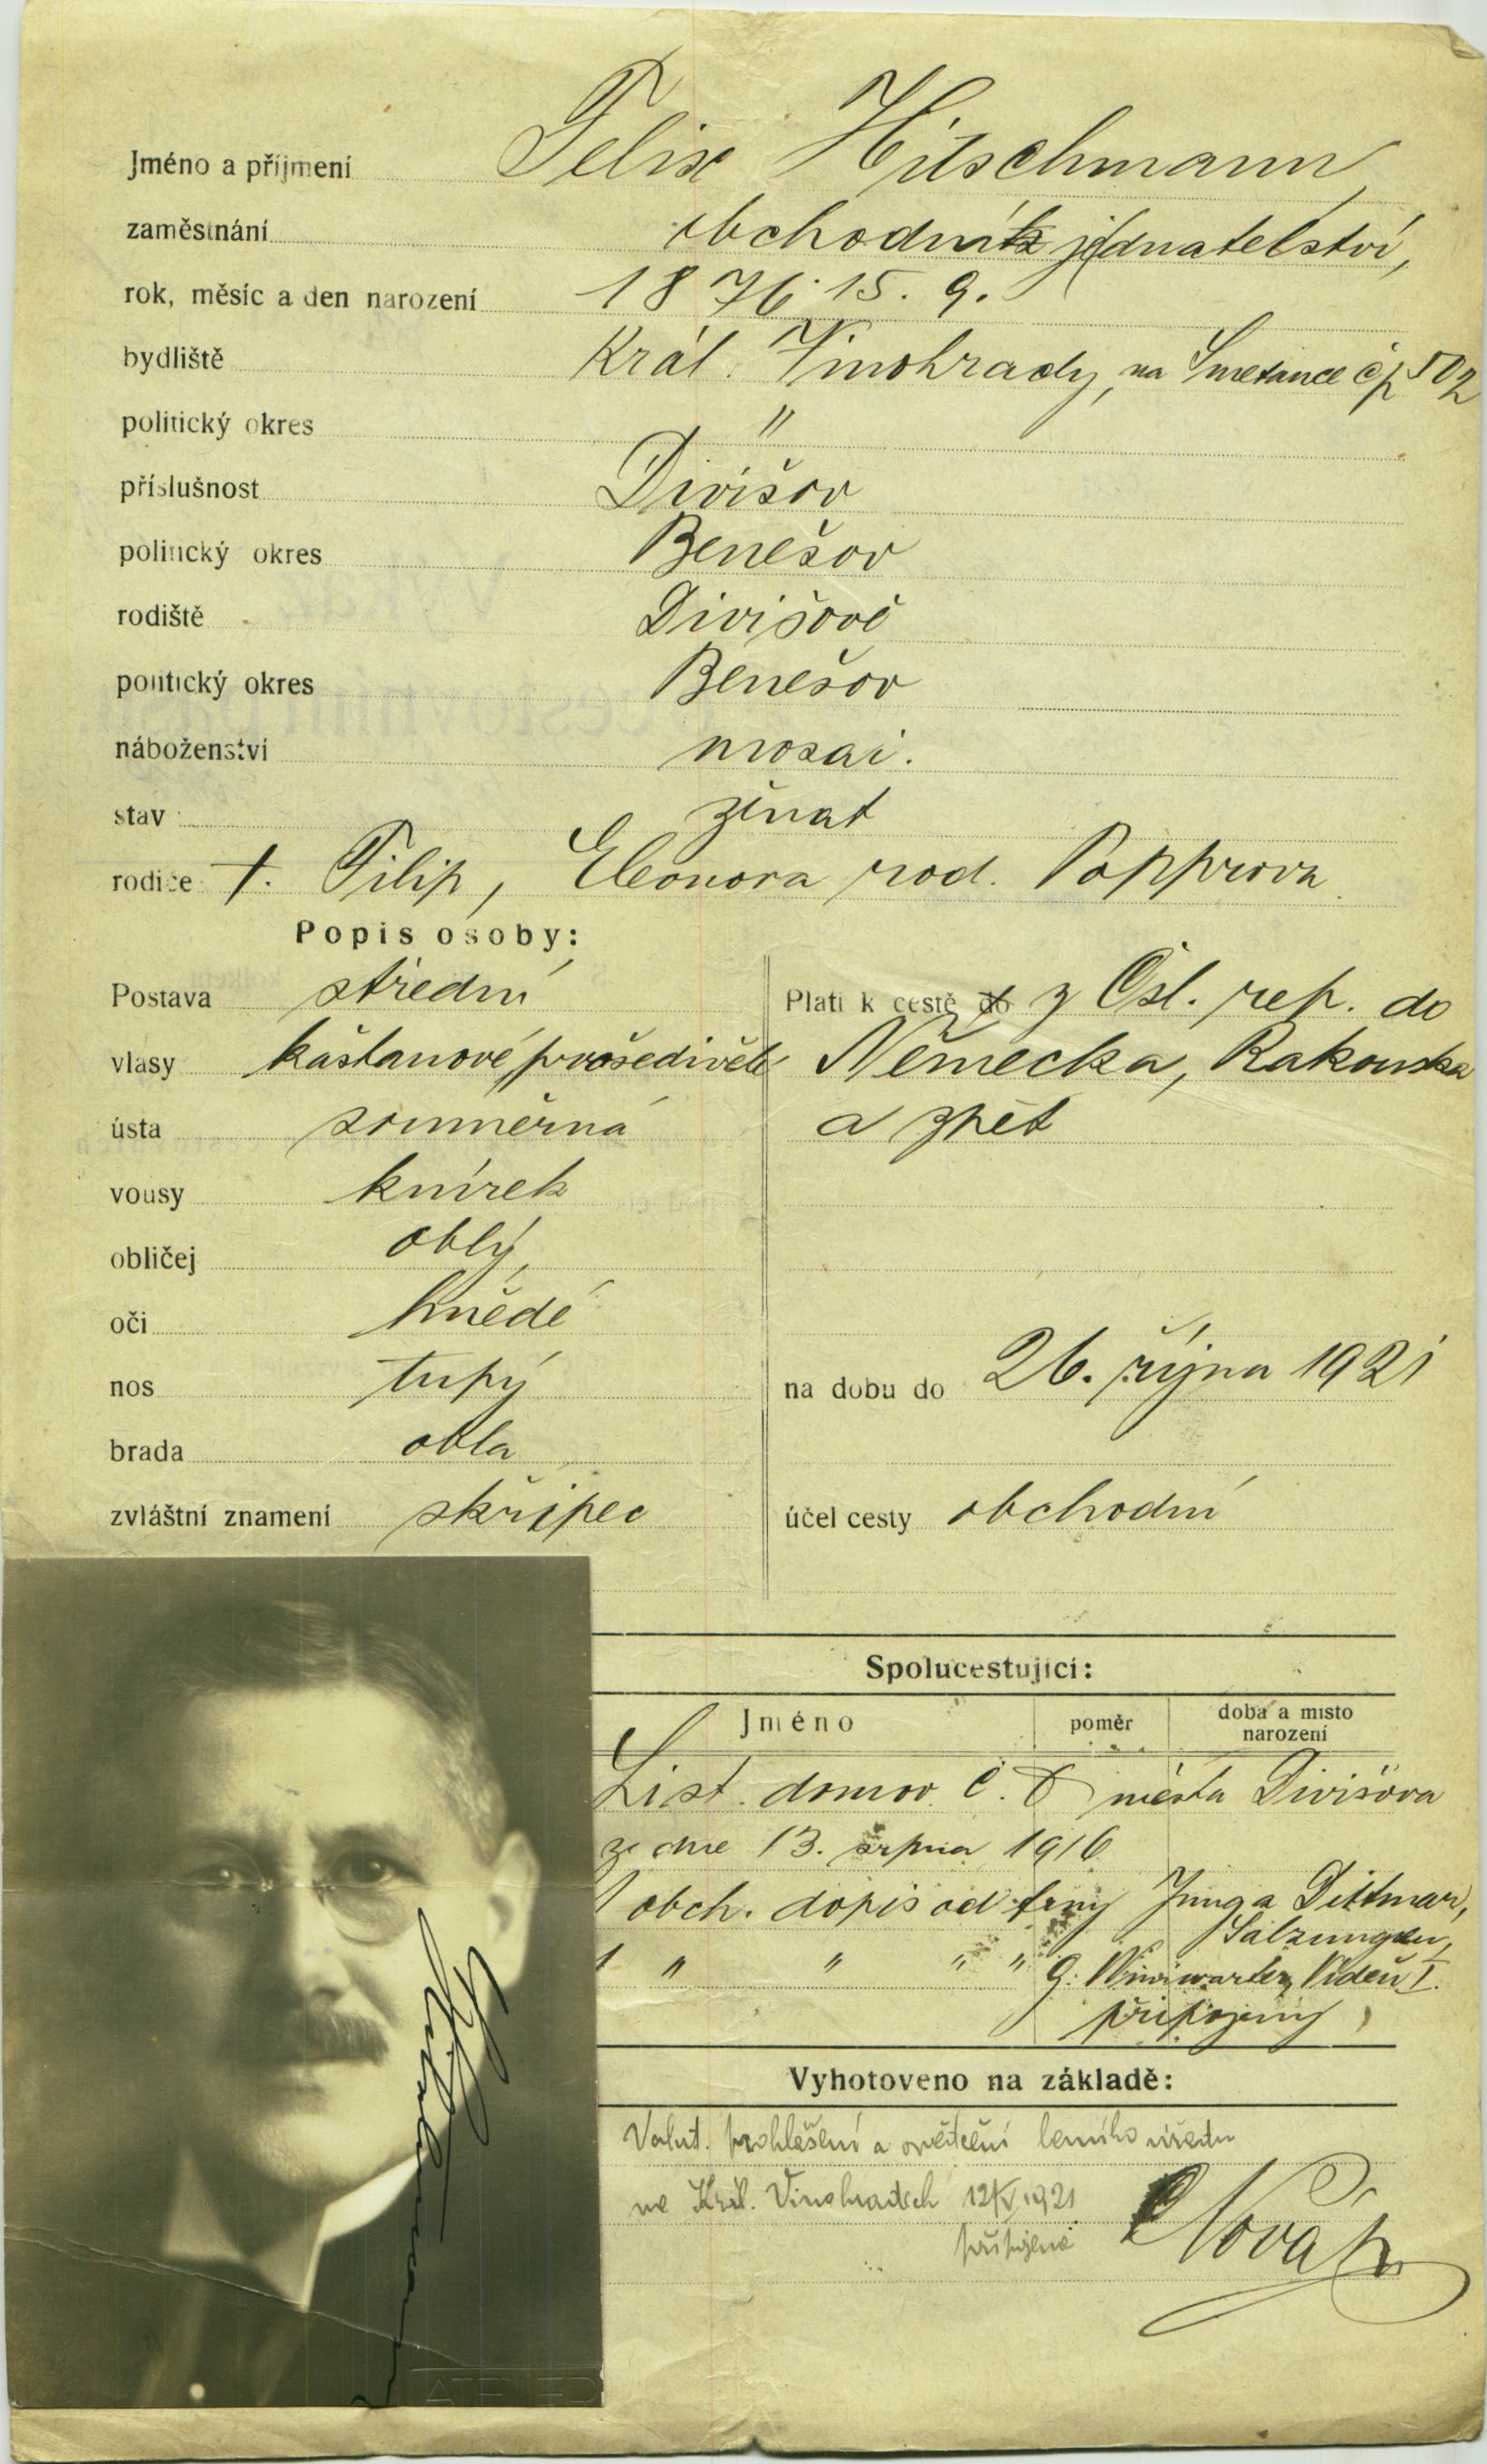 Jméno a příjmení Felix Hitschmann,
zaměstnání obchodník jednatelství,
rok, měsíc a den narození 1876. 15. 9.
bydliště Král. Vinohrady, na Smetance čp 502
politický okres "
příslušnost Divišov
politický okres Benešov
rodiště Divišově
politický okres Benešov
náboženství mosai.
stav ženat
rodiče †. Filip, Eleonora rod. Popprova
Popis osoby:
Postava střední
vlasy kaštanové, prošedivělé
ústa souměrná
vousy knírek
obličej oblý
oči hnědé
nos tupý
brada oblá
zvláštní znamení skřipec
Platí k cestě do z Čsl. rep. do
Německa, Rakouska
a zpět
na dobu do 26. října 1921
účel cesty obchodní
Spolucestující:
Jméno poměr doba a místo narození
List. domov. č. města Divišova
ze dne 13. srpna 1916
1 obch. dopis od firmy Jung a Dittmar,
Salzungen,
1 " " " " G. Winiwarter, Vídeň I.
připojeny
Vyhotoveno na základě:
Valut. prohlášení a osvědčení úřadu
na Král. Vinohradech 12/V 1921
připojena
Novák
Hitschmann